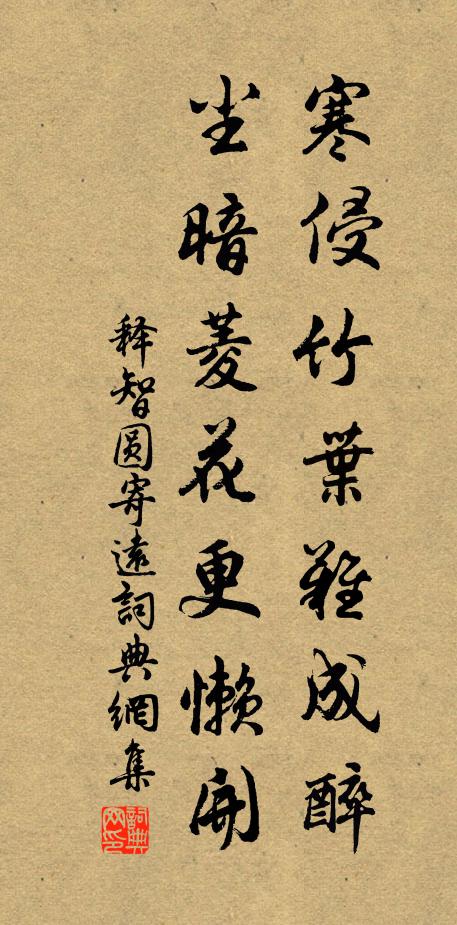 寒侵竹葉難成醉
尘暗菱花更懶開
释智圆寄遠詞典網集
詞典网印